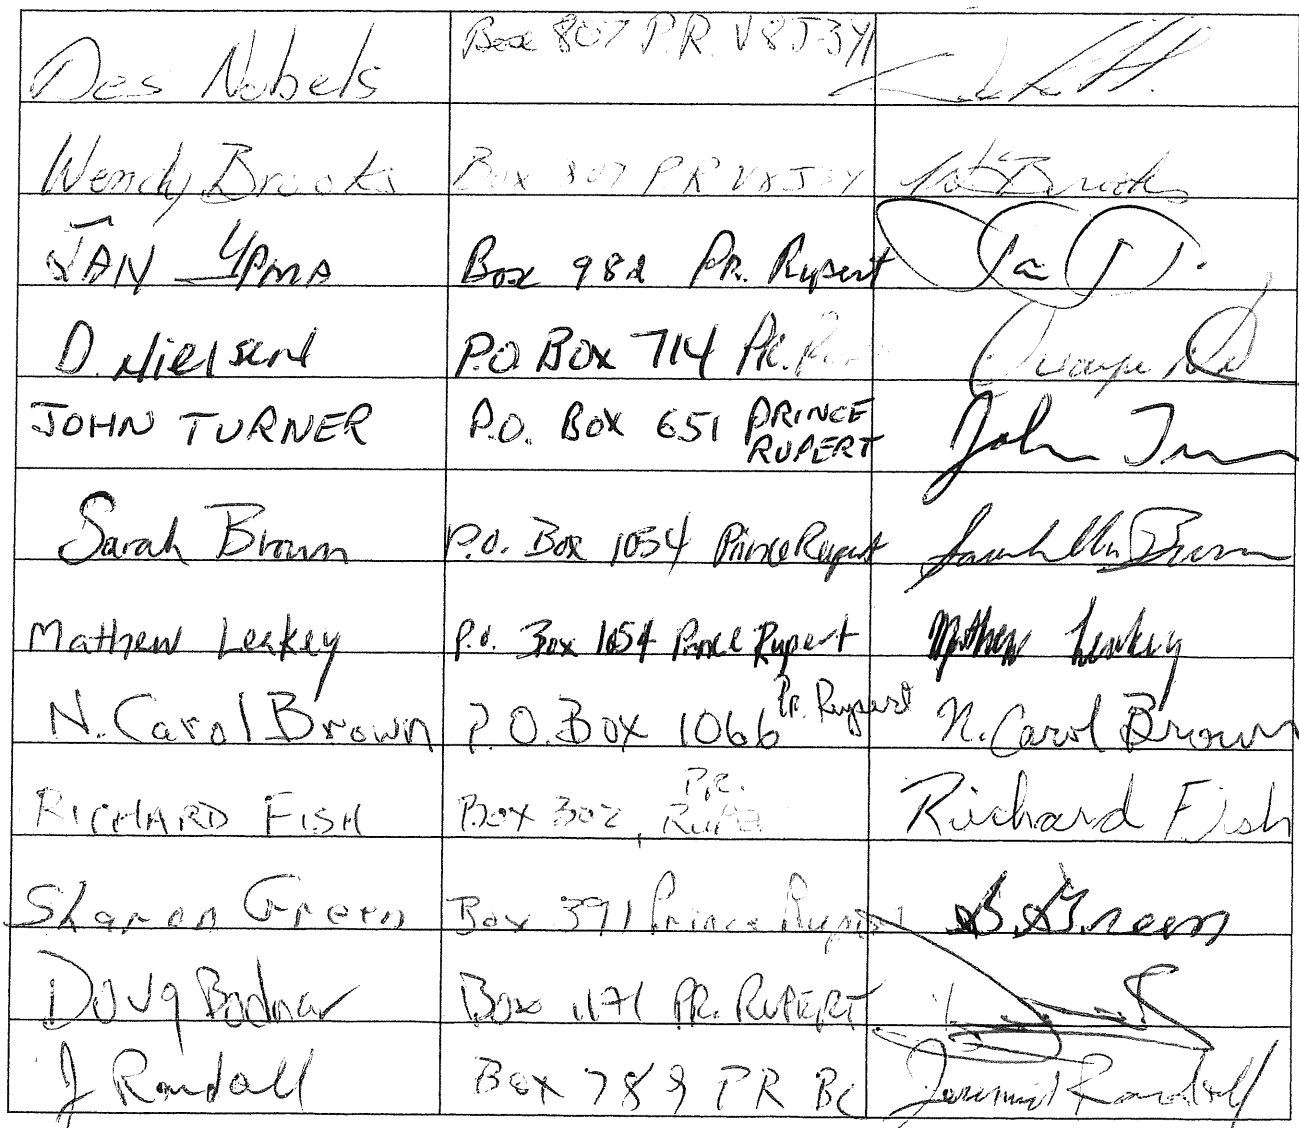 Des Nobels Box 807 P.R. V8J3Y1
Wendy Brooks Box 807 PR V8J3Y1 W Brooks
JAN YPMA Box 982 PR. Rupert Jan
D. Nielsen P.O. Box 714 PR.
JOHN TURNER P.O. Box 651 PRINCE RUPERT John Turner
Sarah Brown P.O. Box 1054 Prince Rupert Sarah Brown
Mathew Leakey P.O. Box 1054 Prince Rupert Mathew Leakey
N. Carol Brown P.O. Box 1066 Pr. Rupert N. Carol Brown
RICHARD FISH Box 302, PR. Richard Fish
Sharon Green Box 391 Prince Rupert S. Green
Doug Bodnar Box 1171 PR. RUPERT
J Randall Box 789 PR BC Randall